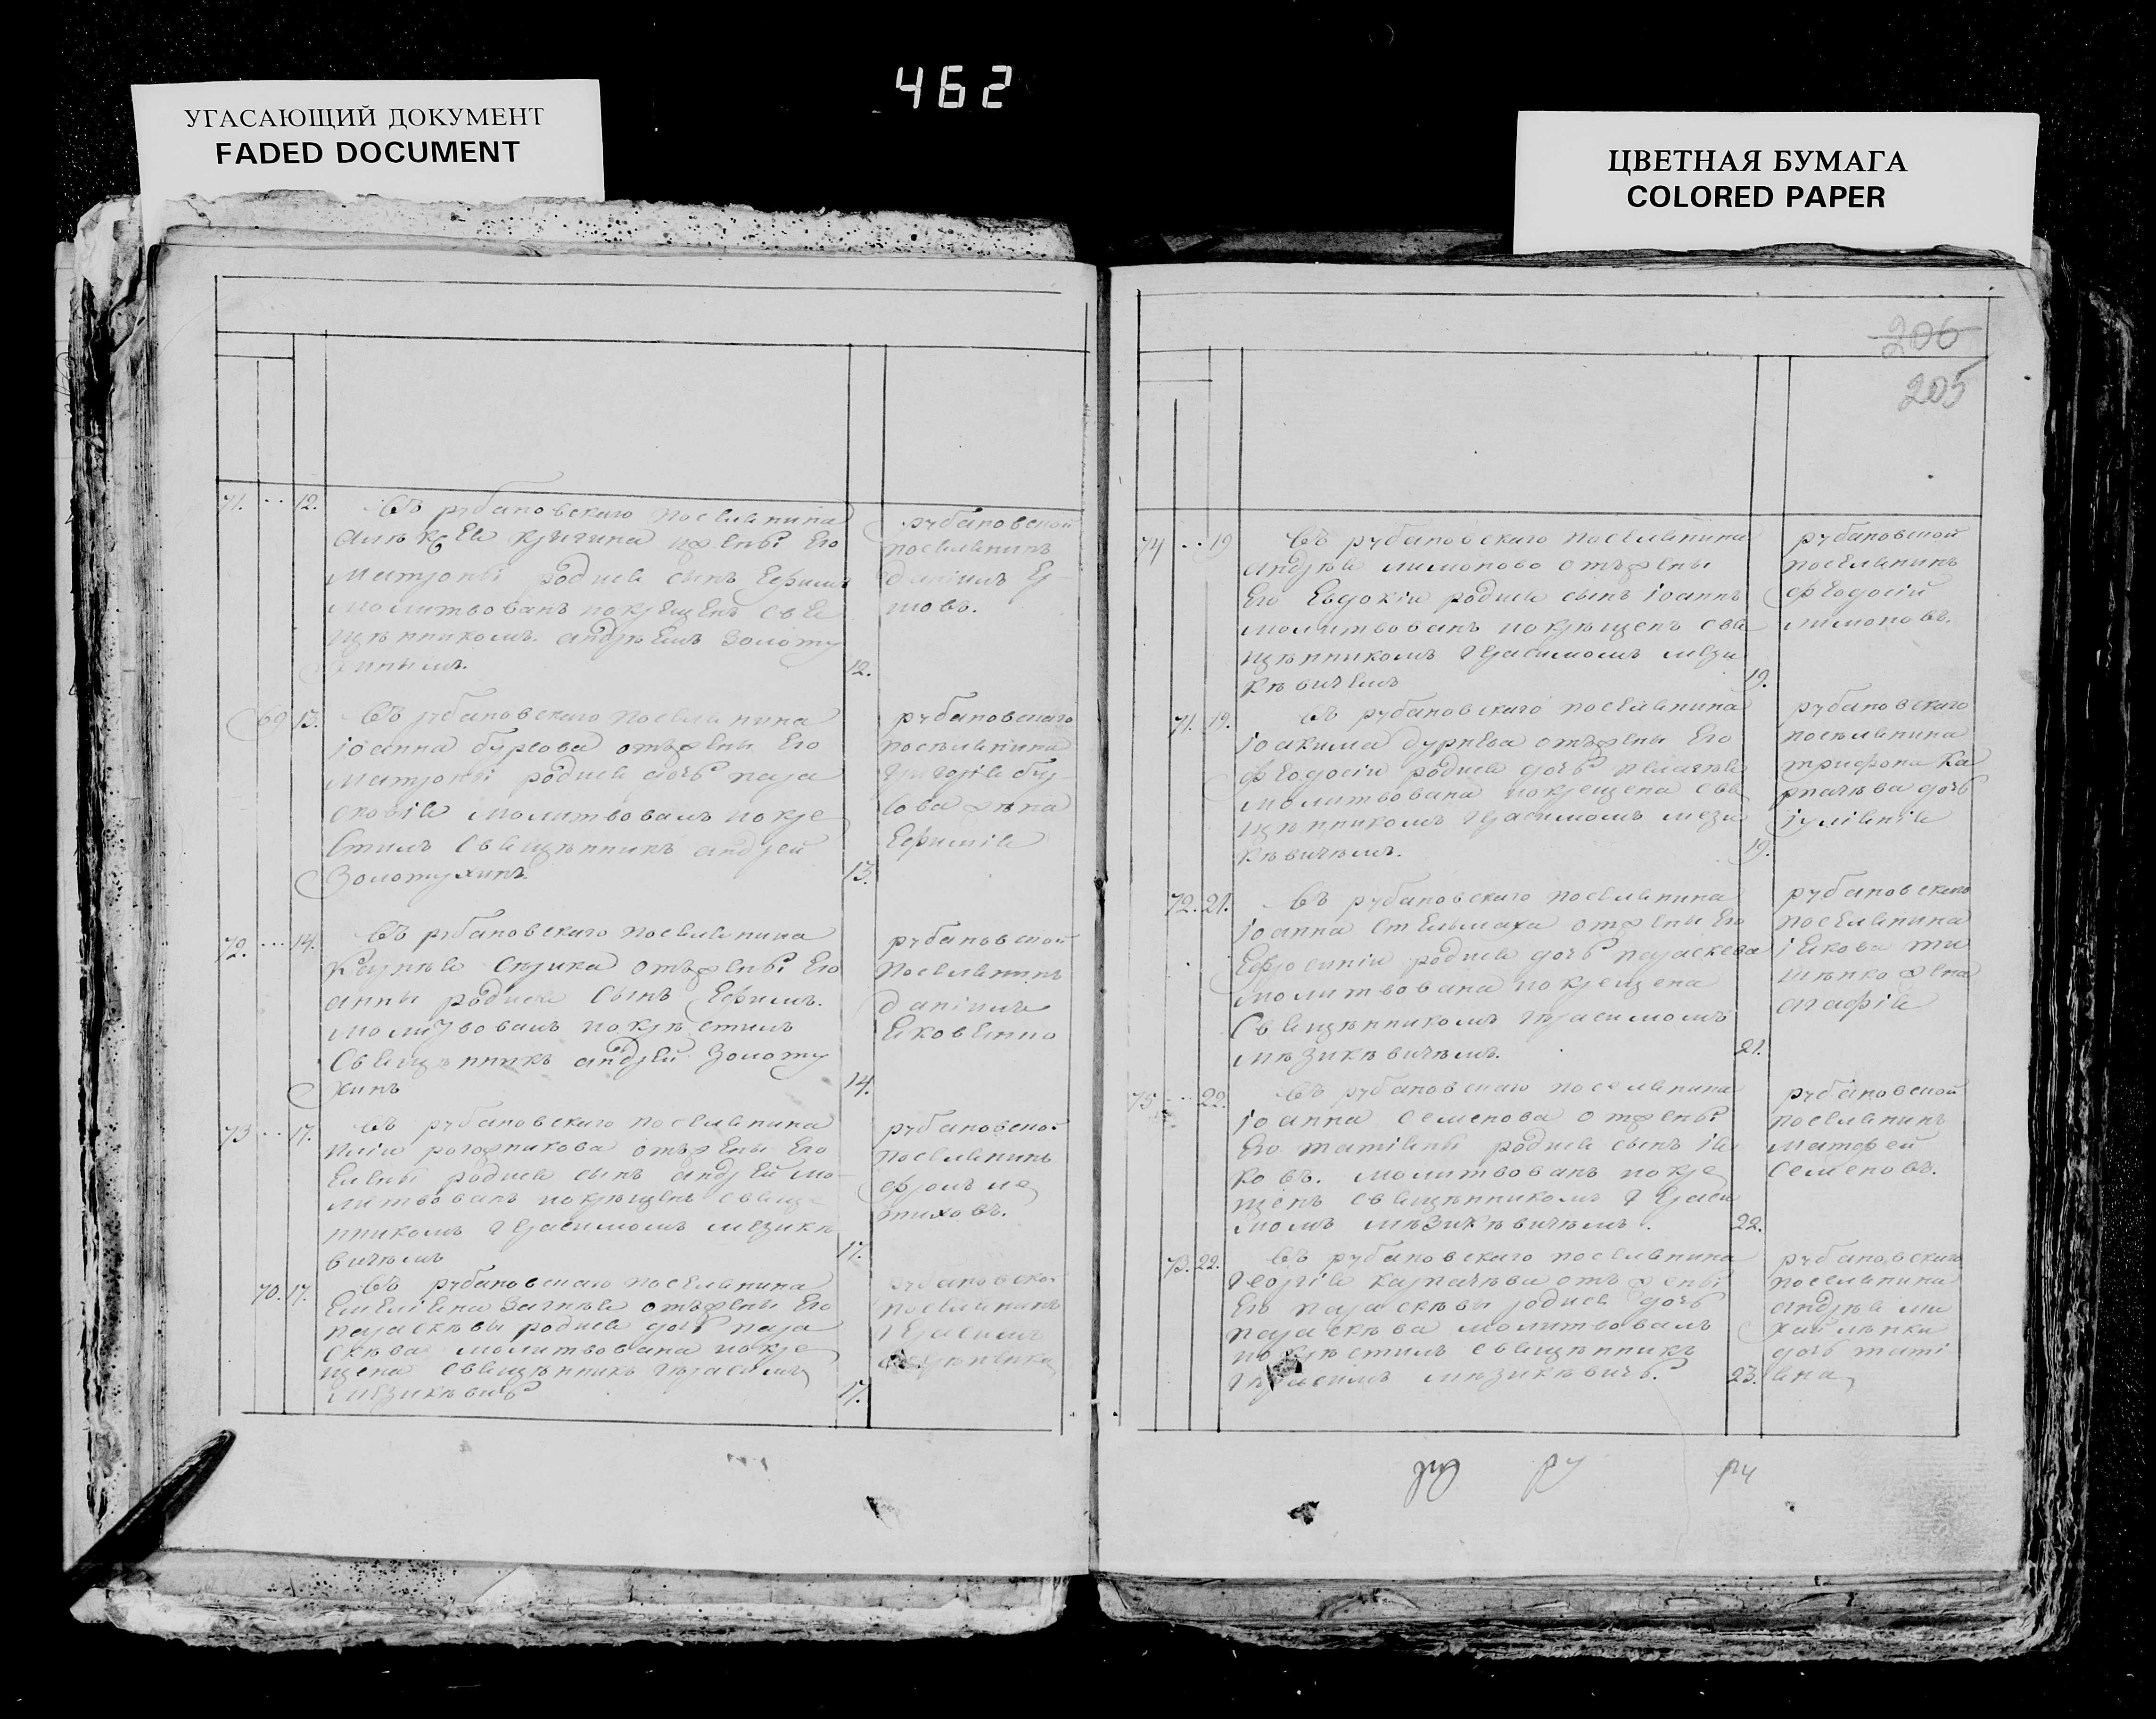 462
УГАСАЮЩИЙ ДОКУМЕНТ
FADED DOCUMENT
ЦВЕТНАЯ БУМАГА
COLORED PAPER
206
205
71. 12. Въ рубановскаго поселянина
матроны родися сынъ Ефимъ
молитвованъ и крещенъ свя
щѣнникомъ андрѣемъ золоту
хинымъ.
12.
рубановской
поселянинъ
даніилъ
69 13. Въ рубановскаго поселянина
іоанна бурсова отъ жены его
матроны родися дочь пара
сковія молитвовалъ и кре
стилъ священникъ андрей
золотухинъ.
13.
рубановскаго
поселянина
григорія бур
сова жѣна
Ефимія
72. 14. Въ рубановскаго поселянина
отъ жены его
анны родися сынъ Ефимъ.
молитвовалъ и крѣстилъ
священникъ андрей золоту
хинъ
14.
рубановской
поселянинъ
даніилъ
73 17. Въ рубановскаго поселянина
иліи отъ жены его
Елены родися сынъ андрей мо
литвованъ и крещенъ свящ
нникомъ герасимомъ мезикѣ
вичѣмъ
17.
рубановской
поселянинъ
70. 17. Въ рубановскаго поселянина
отъ жены его
параскѣвы родися дочь пара
скѣва молитвована и кре
щена священникъ герасимъ
мѣзикѣвичь
17.
рубановской
поселянинъ
герасимъ
74 19 Въ рубановскаго поселянина
андрѣя лимоново отъ жены
его Евдокіи родися сынъ іоаннъ
молитвованъ и крѣщенъ свя
щѣнникомъ герасимомъ мези
кѣвичемъ
19.
рубановской
поселянинъ
феодосій
лимоновъ.
71. 19. Въ рубановскаго поселянина
іоакима дурнѣва отъ жены его
феодосіи родися дочь пелагѣя
молитвована и крещена свя
щѣнникомъ герасимомъ мези
кѣвичѣмъ.
19.
рубановскаго
поселянина
трифона ка
рпачѣва дочь
іуліянія
72. 21. Въ рубановскаго поселянина
іоанна стельмаха отъ жены его
Ефросиніи родися дочь параскева
молитвована и крещена
священникомъ гѣрасимомъ
мѣзикѣвичѣмъ.
21.
рубановскаго
поселянина
іякова ти
шѣнко жена
агафія
75 22. Въ рубановскаго поселянина
іоанна семенова отъ жены
его татіяны родися сынъ ія
ковъ. молитвованъ и кре
щенъ священникомъ гераси
момъ мѣзикѣвичѣмъ.
22.
рубановской
поселянинъ
матфей
семеновъ.
73. 22. Въ рубановскаго поселянина
георгія карпачѣва отъ жены
его параскѣвы родися дочь
параскѣва молитвовалъ
и крѣстилъ священникъ
герасимъ мѣзикѣвичь.
23.
рубановскаго
поселянина
андрѣя ми
хайлѣнка
дочь тати
яна
ру